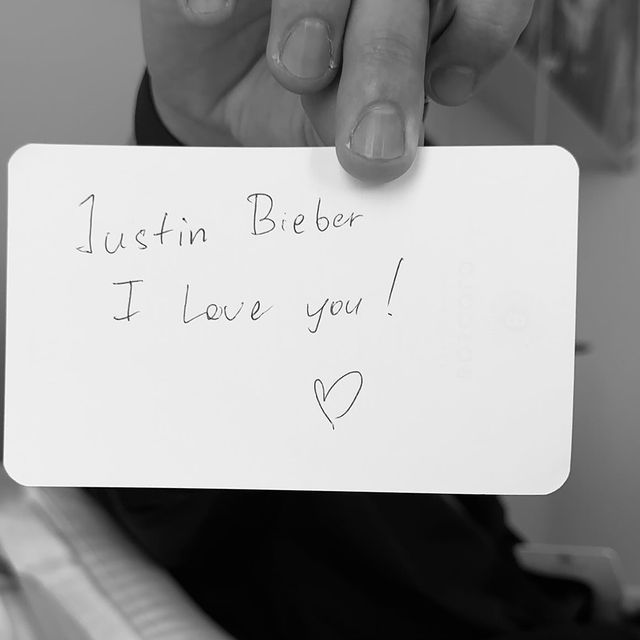 Justin Bieber
I Love you!